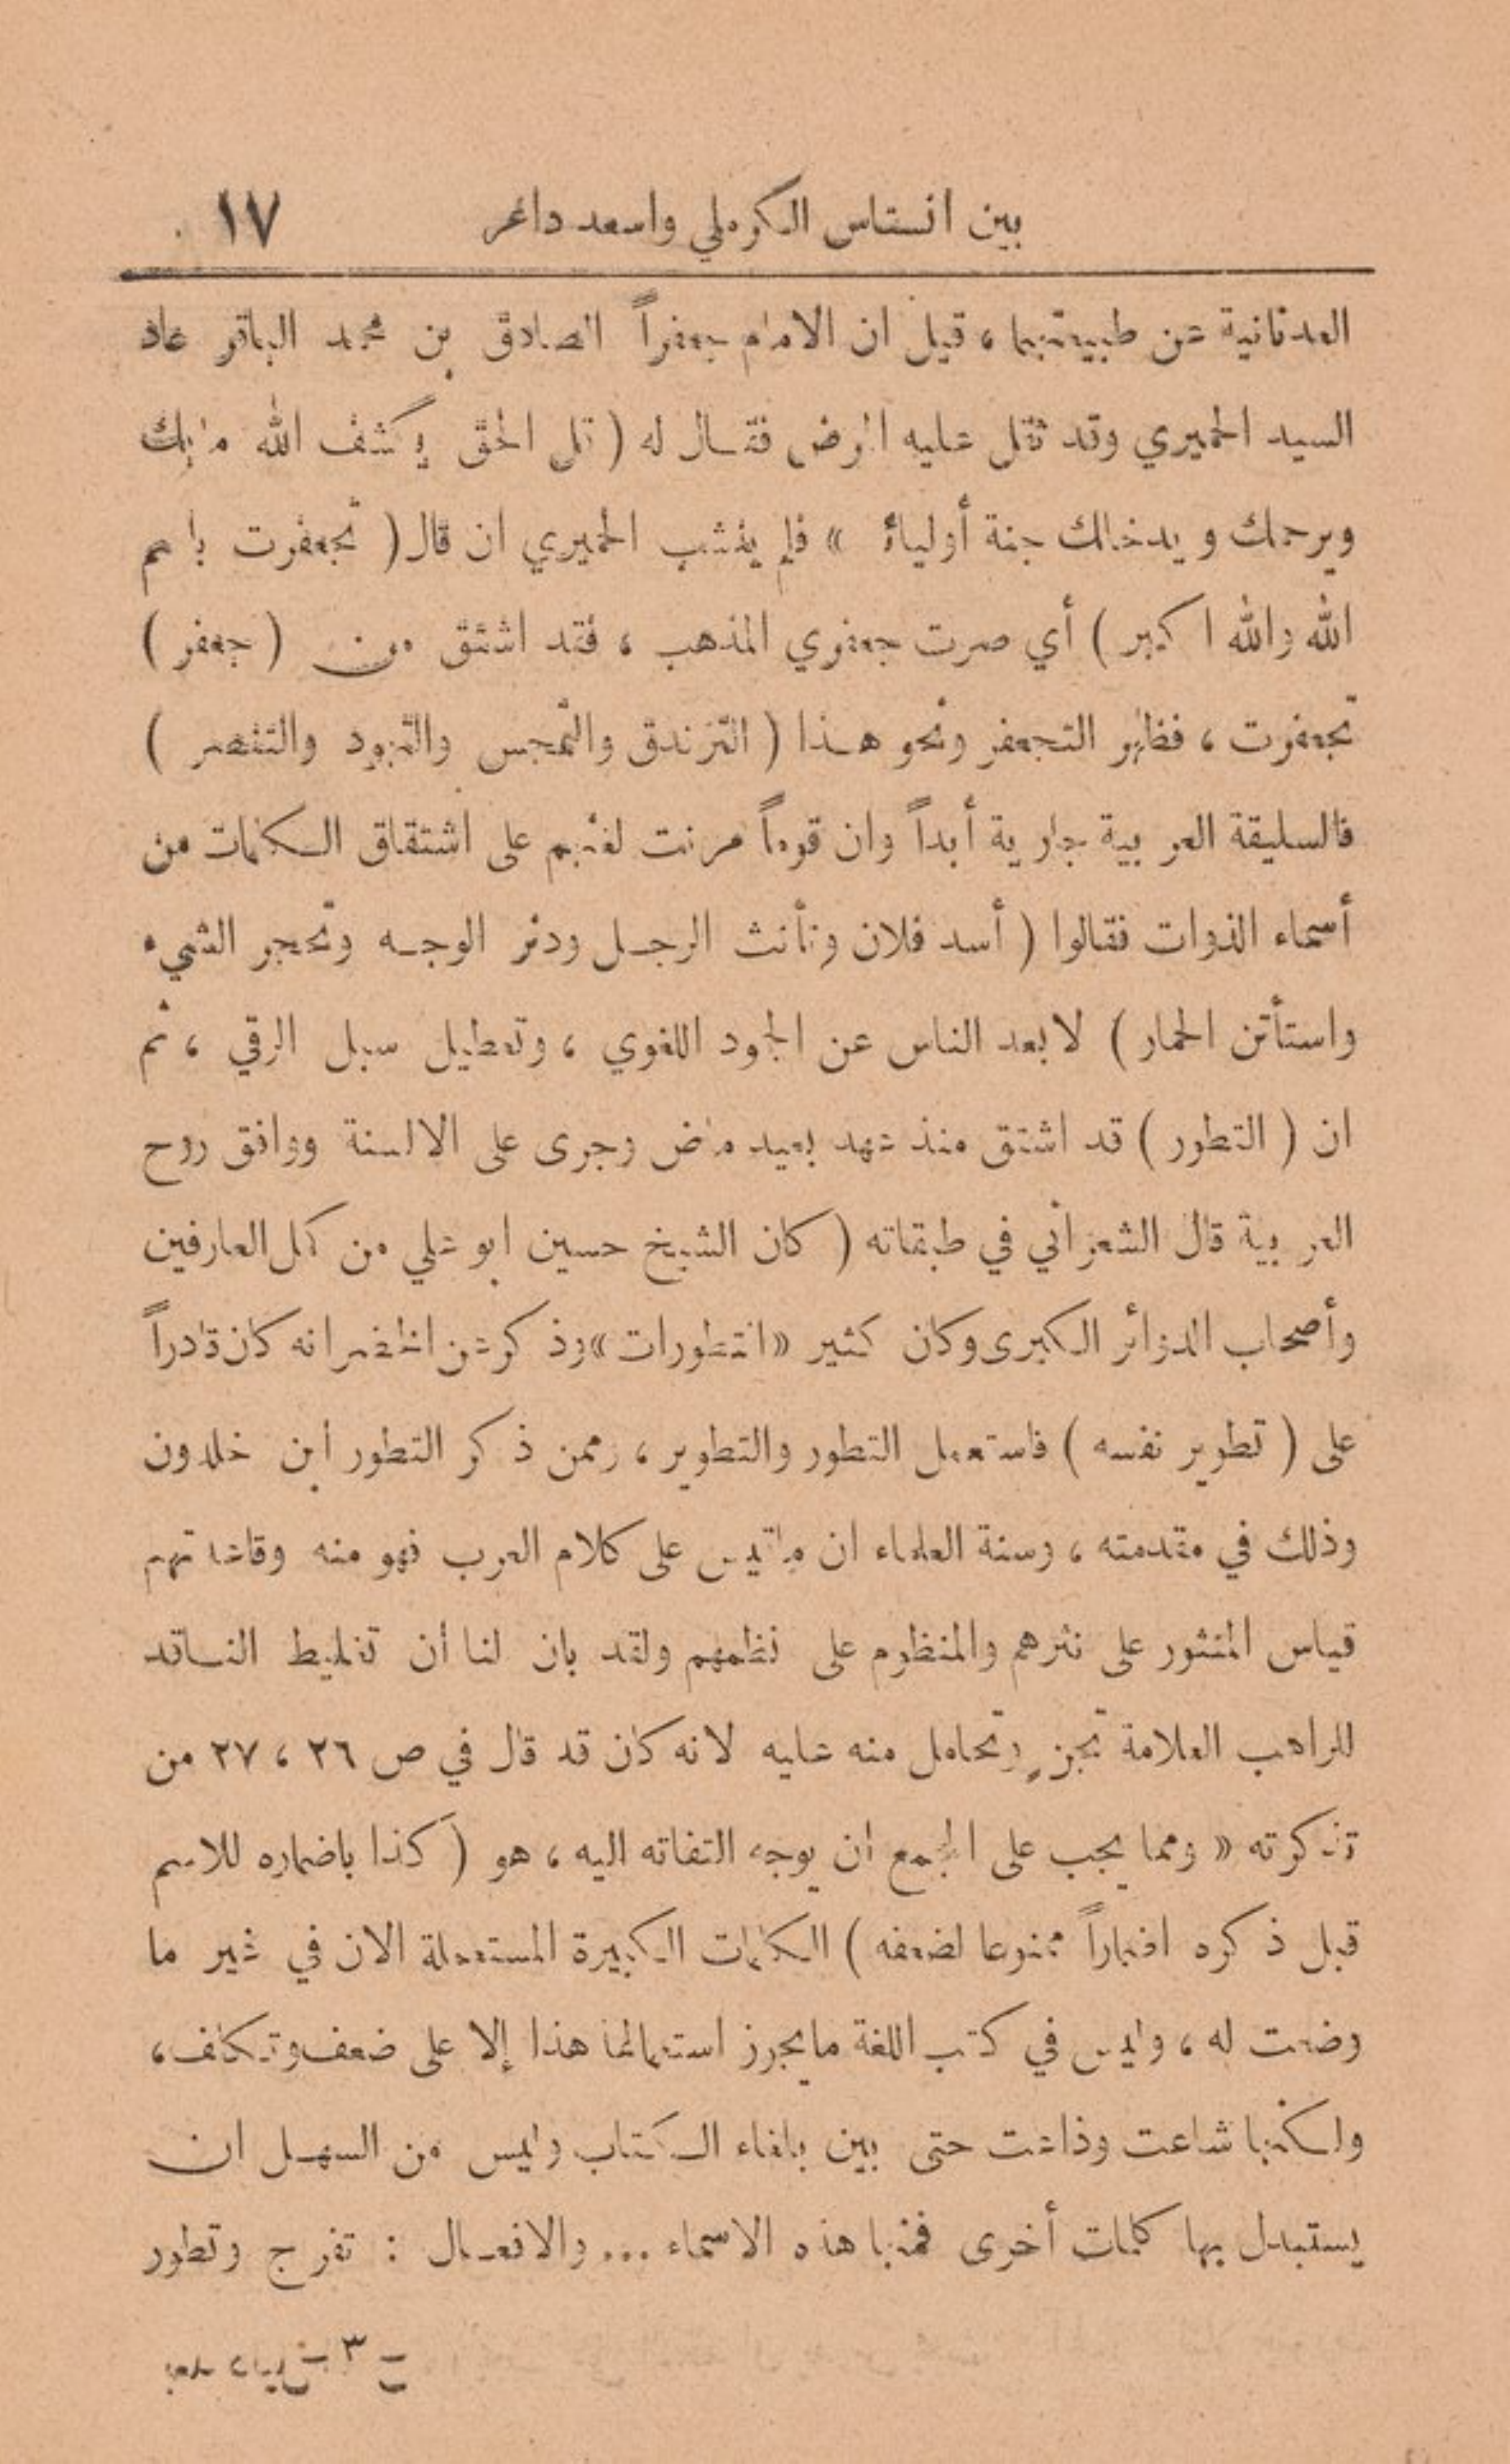 بين انستاس الكرملي واسعد داغر ١٧
العدنانية عن طبيعتها ، قيل ان الامام جعفراً الصادق بن محمد الباقر عاد
السيد الحميري وقد ثقل عليه المرض فقال له ( قل الحق يكشف الله مابك
ويرحمك ويدخلك جنة أوليائه » فلم ينشب الحميري ان قال ( تجعفرت باسم
الله والله اكبر ) أي صرت جعفري المذهب ، فقد اشتق من ( جعفر )
تجعفرت ، فظهر التجعفر ونحو هذا ( التزندق والتمجس والتهود والتنصر )
فالسليقة العربية جارية أبداً وان قوماً مرنت لغتهم على اشتقاق الكلمات من
أسماء الذوات فقالوا ( أسد فلان وتأنث الرجل ودنر الوجه وتحجر الشيء
واستأتن الحمار ) لابعد الناس عن الجمود اللغوي ، وتعطيل سبل الرقي ، ثم
ان ( التطور ) قد اشتق منذ عهد بعيد ماض وجرى على الالسنة ووافق روح
العربية قال الشعراني في طبقاته ( كان الشيخ حسين ابو علي من كمل العارفين
وأصحاب الدوائر الكبرى وكان كثير « التطورات » وذكر عن الخضر انه كان قادراً
على ( تطوير نفسه ) فاستعمل التطور والتطوير ، وممن ذكر التطور ابن خلدون
وذلك في مقدمته ، وسنة العلماء ان ماقيس على كلام العرب فهو منه وقاعدتهم
قياس المنثور على نثرهم والمنظوم على نظمهم ولقد بان لنا أن تغليط الناقد
للراهب العلامة تجنٍ وتحامل منه عليه لانه كان قد قال في ص ٢٦ ، ٢٧ من
تذكرته « ومما يجب على المجمع ان يوجه التفاته اليه ، هو ( كذا باضماره للاسم
قبل ذكره اضماراً ممنوعا لضعفه ) الكلمات الكبيرة المستعملة الان في غير ما
وضعت له ، وليس في كتب اللغة مايجوز استعمالها هذا إلا على ضعف وتكلف ،
ولكنها شاعت وذاعت حتى بين بلغاء الكتاب وليس من السهل ان
يستبدل بها كلمات أخرى فمنها هذه الاسماء ... والافعال : تفرج وتطور
٣